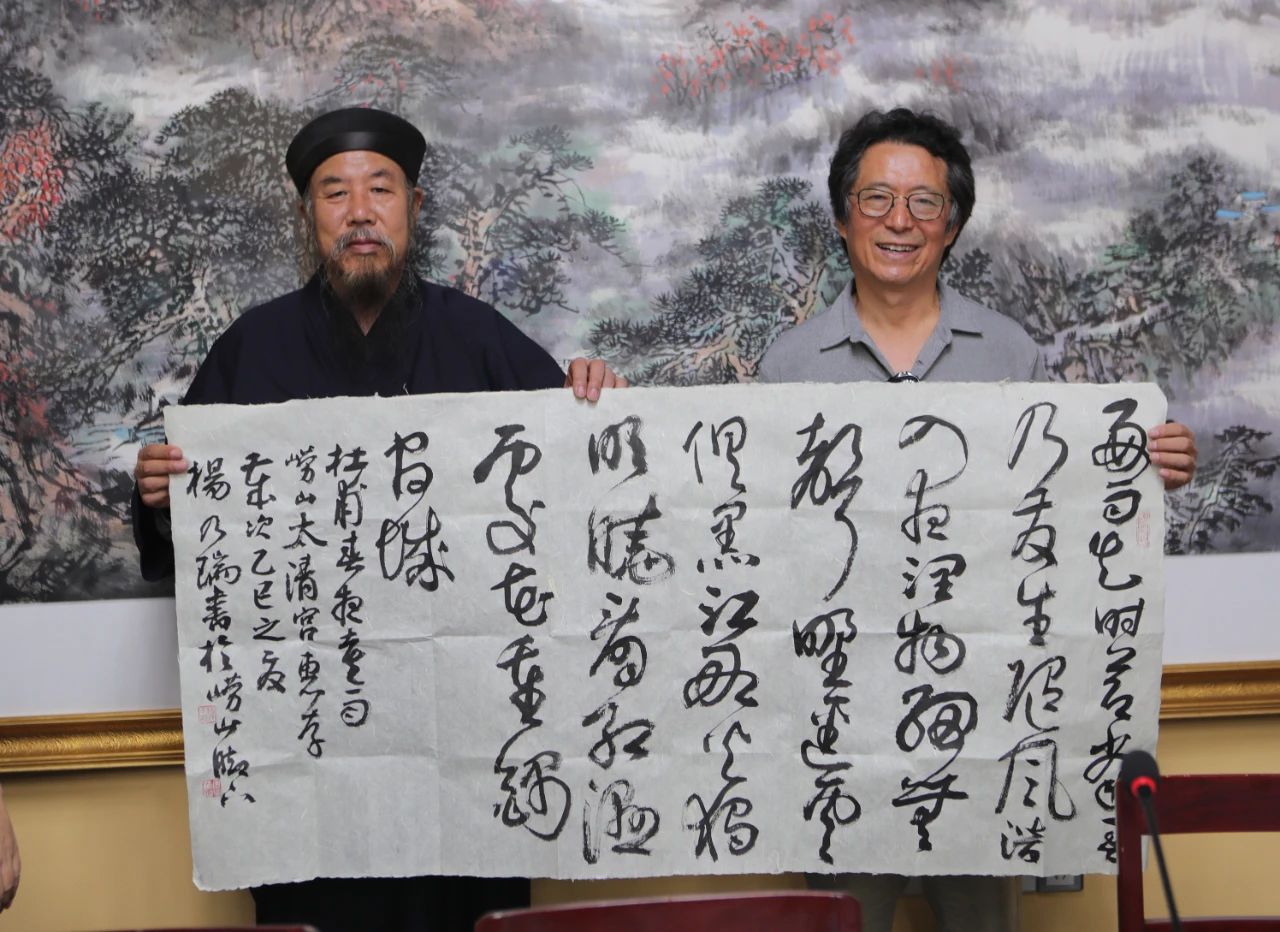 好雨知时节当春
乃发生随风潜
入夜润物细无
声野径云
俱黑江船火独
明晓看红湿
处花重锦
官城
杜甫春夜喜雨
崂山太清宫惠存
岁次乙巳之夏
楊乃瑞書於崂山脚下